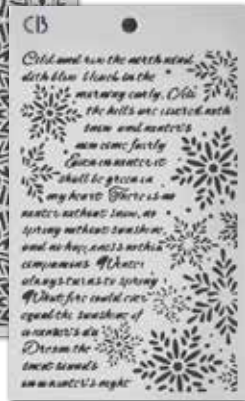 CB
Cold and raw the north wind
doth blow bleak in the
morning early, All
the hills are covered with
snow and winter's
now come fairly
Even in winter it
shall be green in
my heart There is no
winter without snow, no
spring without sunshine,
and no happiness without
companions Winter
always turns to spring
What fire could ever
equal the sunshine of
a winter's day
Dream the
sweet sounds
on a winter's night